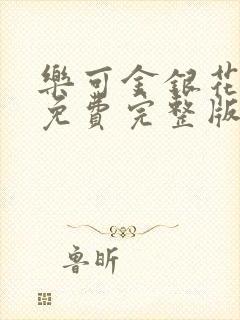 樂可金銀花
免費完整版
魯昕